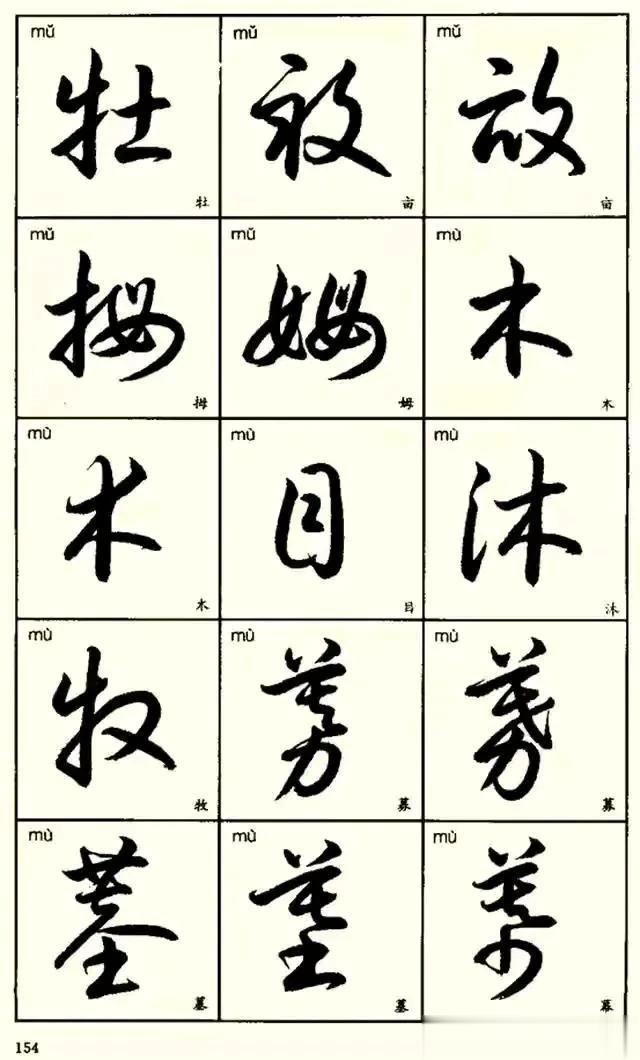 mǔ mǔ mǔ
牡 亩 亩
牡 亩 亩
mǔ mǔ mù
拇 姆 木
拇 姆 木
mù mù mù
木 目 沐
木 目 沐
mù mù mù
牧 募 募
牧 募 募
mù mù mù
墓 墓 幕
墓 墓 幕
154